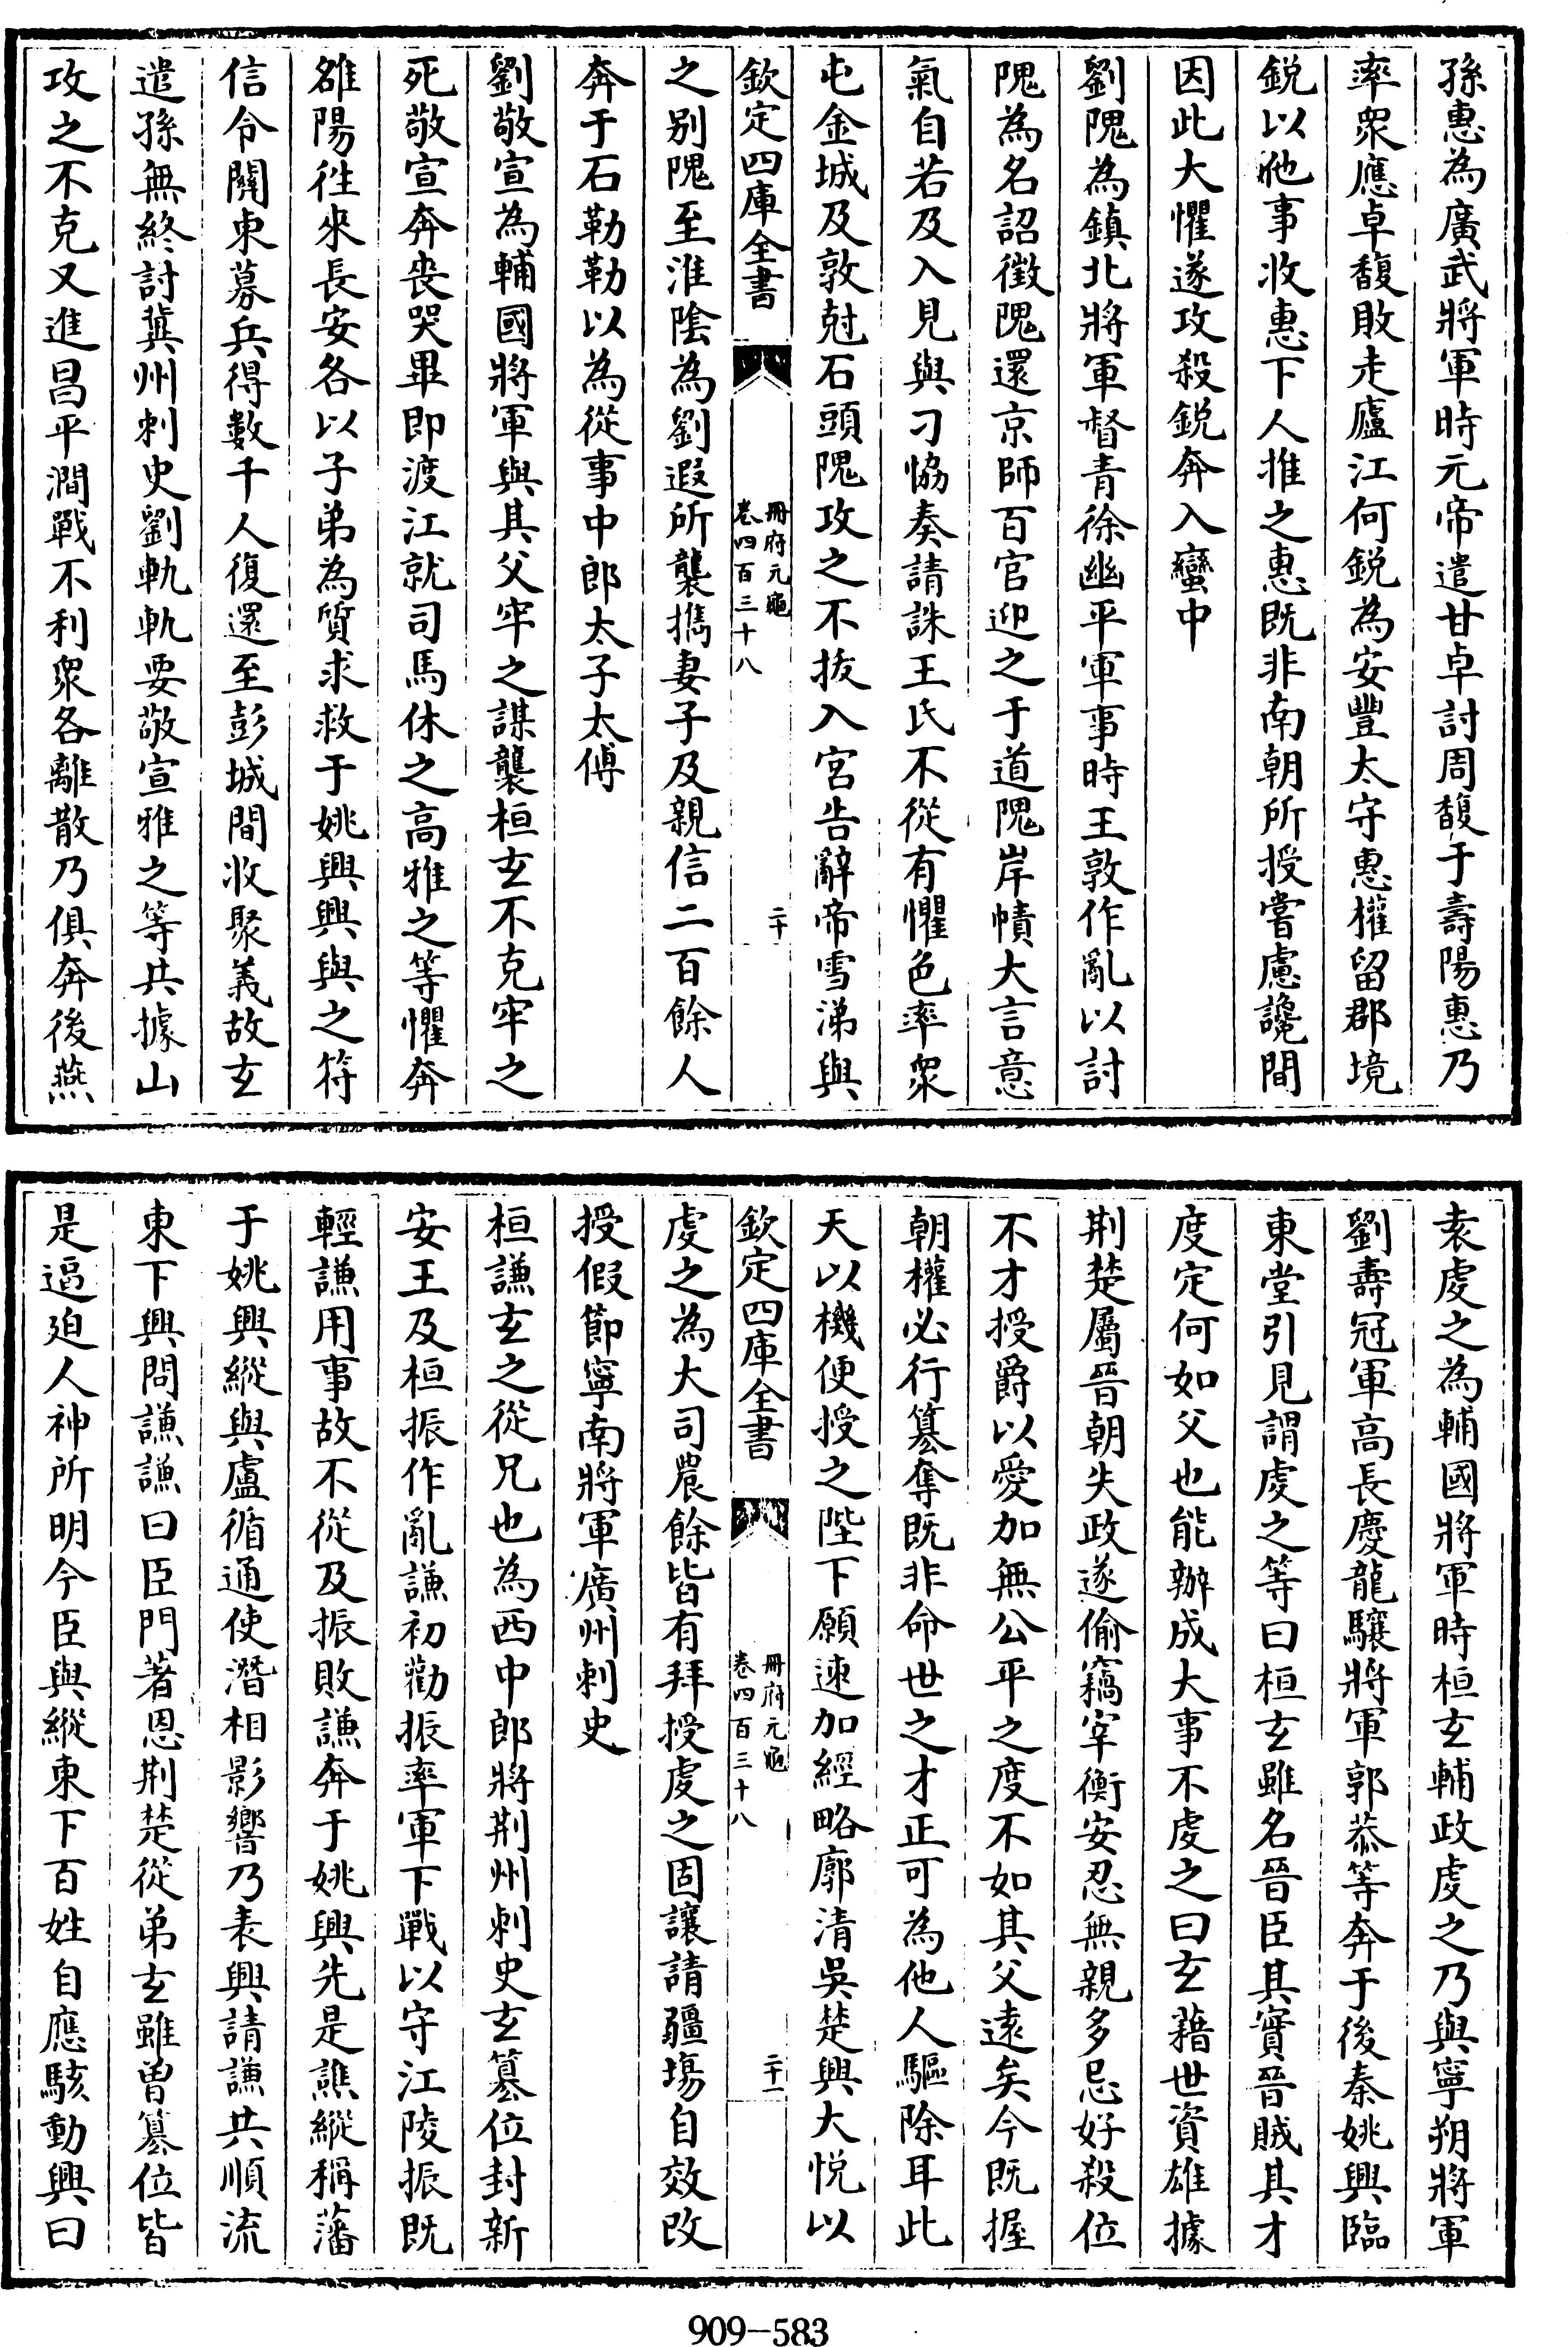 孫惠為廣武將軍時元帝遣甘卓討周馥于壽陽惠乃
率衆應卓馥敗走廬江何鋭為安豐太守惠權留郡境
鋭以他事收惠下人推之惠既非南朝所授嘗慮讒間
因此大懼遂攻殺鋭奔入蠻中
劉隗為鎮北將軍督青徐幽平軍事時王敦作亂以討
隗為名詔徴隗還京師百官迎之于道隗岸幘大言意
氣自若及入見與刁恊奏請誅王氏不從有懼色率衆
屯金城及敦尅石頭隗攻之不拔入宮告辭帝雪涕與
欽定四庫全書
冊府元龜
卷四百三十八
二十
之别隗至淮陰為劉遐所襲擕妻子及親信二百餘人
奔于石勒勒以為從事中郎太子太傅
劉敬宣為輔國將軍與其父牢之謀襲桓玄不克牢之
死敬宣奔喪哭畢即渡江就司馬休之高雅之等懼奔
雒陽徃來長安各以子弟為質求救于姚興興與之符
信令關東募兵得數千人復還至彭城間收聚義故玄
遣孫無終討冀州刺史劉軌軌要敬宣雅之等共據山
攻之不克又進昌平澗戰不利衆各離散乃俱奔後燕
袁虔之為輔國將軍時桓玄輔政虔之乃與寧朔將軍
劉壽冠軍高長慶龍驤將軍郭恭等奔于後秦姚興臨
東堂引見謂虔之等曰桓玄雖名晉臣其實晉賊其才
度定何如父也能辦成大事不虔之曰玄藉世資雄據
荆楚屬晉朝失政遂偷竊宰衡安忍無親多忌好殺位
不才授爵以愛加無公平之度不如其父遠矣今既握
朝權必行簒奪既非命世之才正可為他人驅除耳此
天以機便授之陛下願速加經略廓清吳楚興大悦以
欽定四庫全書
冊府元龜
卷四百三十八
二十一
虔之為大司農餘皆有拜授虔之固讓請疆塲自效改
授假節寧南將軍廣州刺史
桓謙玄之從兄也為西中郎將荆州刺史玄簒位封新
安王及桓振作亂謙初勸振率軍下戰以守江陵振既
輕謙用事故不從及振敗謙奔于姚興先是譙縱稱藩
于姚興縱與盧循通使潛相影響乃表興請謙共順流
東下興問謙謙曰臣門著恩荆楚從弟玄雖曽簒位皆
是逼迫人神所明今臣與縱東下百姓自應駭動興曰
909-583